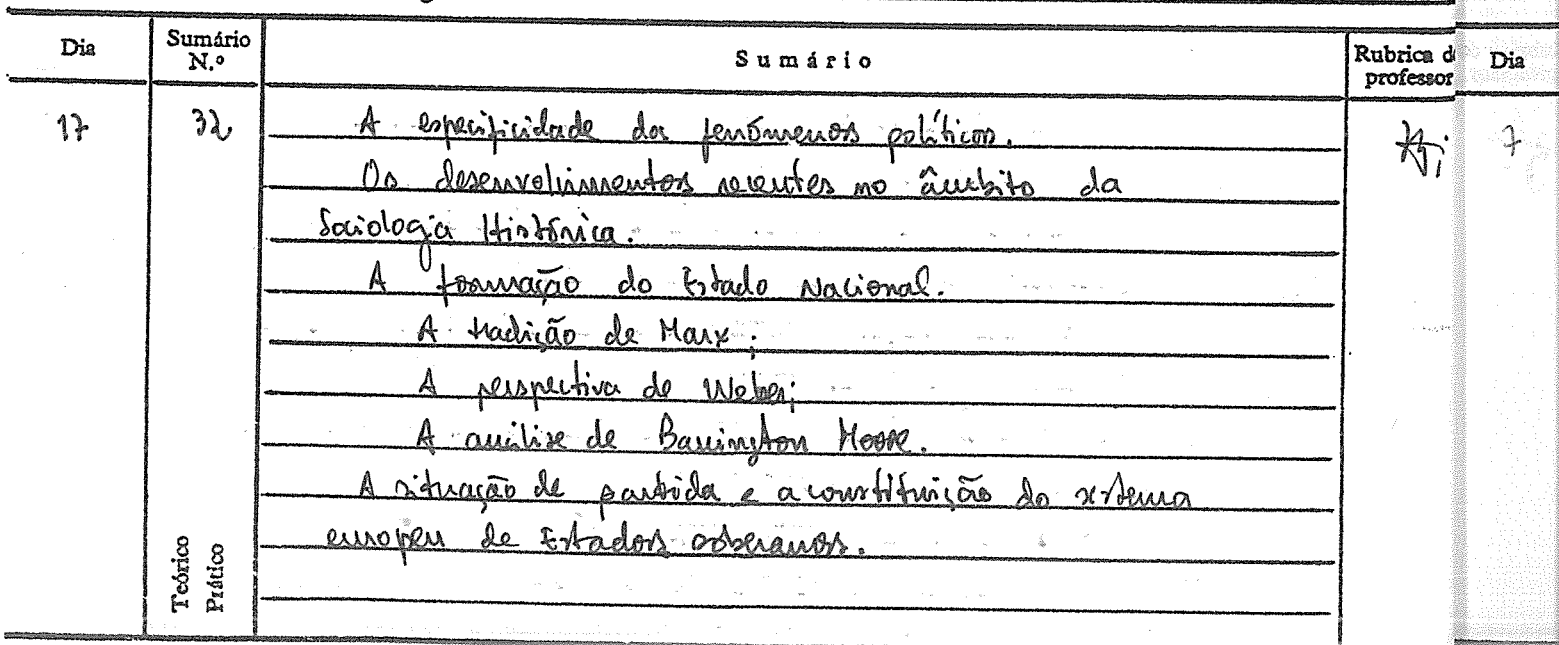 Dia Sumário N.º Sumário Rubrica d professor Dia
17 32 A especificidade dos fenómenos políticos. 7
Os desenvolvimentos recentes no âmbito da
Sociologia Histórica.
A formação do Estado Nacional.
A tradição de Marx;
A perspectiva de Weber;
A análise de Barrington Moore.
A situação de partida e a constituição do sistema
europeu de Estados soberanos.
Teórico
Prático